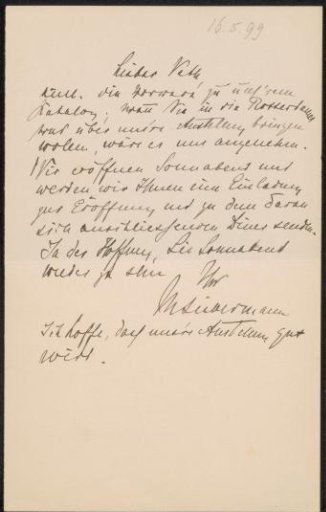 16.5.99
Lieber Veth,
einl. die Vorrede zu uns'rem
Katalog; wenn Sie in die Rotterdamer
was über unsre Ausstellung bringen
wollen, wäre es uns angenehm.
Wir eröffnen Sonnabend und
werden wir Ihnen eine Einladung
zur Eröffnung und zu dem daran
sich anschliessenden Diner senden.
In der Hoffnung, Sie Sonnabend
wieder zu sehn
Ihr
MLiebermann
Ich hoffe, daß unsre Ausstellung gut
wird.